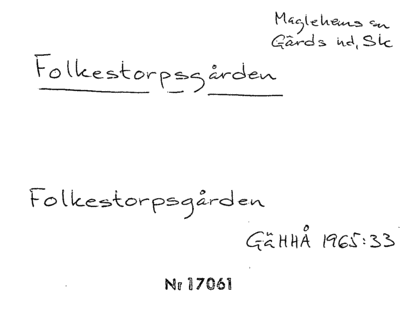 Maglehems sn
Gärds hd, Sk
Folkestorpsgården
Folkestorpsgården
GäHHÅ 1965:33
Nr 17061